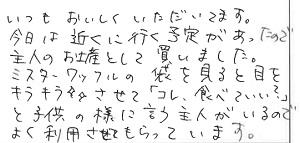 いつも おいしく いただいてます。
今日は 近くに行く予定があったので
主人のお土産として 買いました。
ミスターワッフルの 袋を見ると目を
キラキラさせて「コレ、食べていい?」
と子供の様に言う主人がいるので
よく利用させてもらっています。